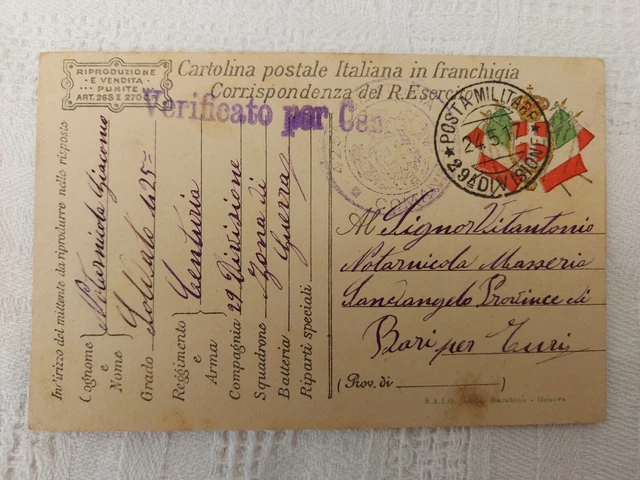 RIPRODUZIONE
E VENDITA
PUNITE
ART. 263 E 270 C.P.
Cartolina postale Italiana in franchigia
Corrispondenza del R. Esercito
Verificato per Cen
POSTA MILITARE
24.5.17
29ª DIVISIONE
Indirizzo del mittente da riprodurre nella risposta
Cognome e Nome Notarnicola Giacomo
Grado Soldato 125º
Reggimento e Arma Centuria
Compagnia 29 Divisione
Squadrone Zona di
Batteria Guerra
Riparti speciali
Al Signor Vitantonio
Notarnicola Masseria
Sandangelo Province di
Bari per Turi
(Prov. di )
S.A.I.G. Barabino - Genova